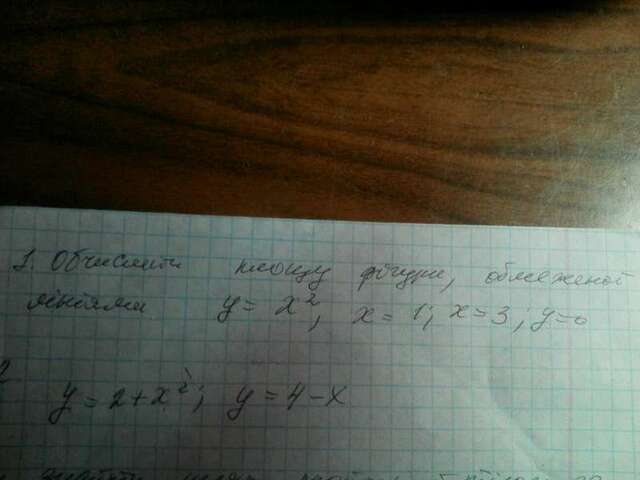 1. Обчислити площу фігури, обмеженої
лініями y = x², x = 1; x = 3; y = 0
2 y = 2 + x²; y = 4 - x